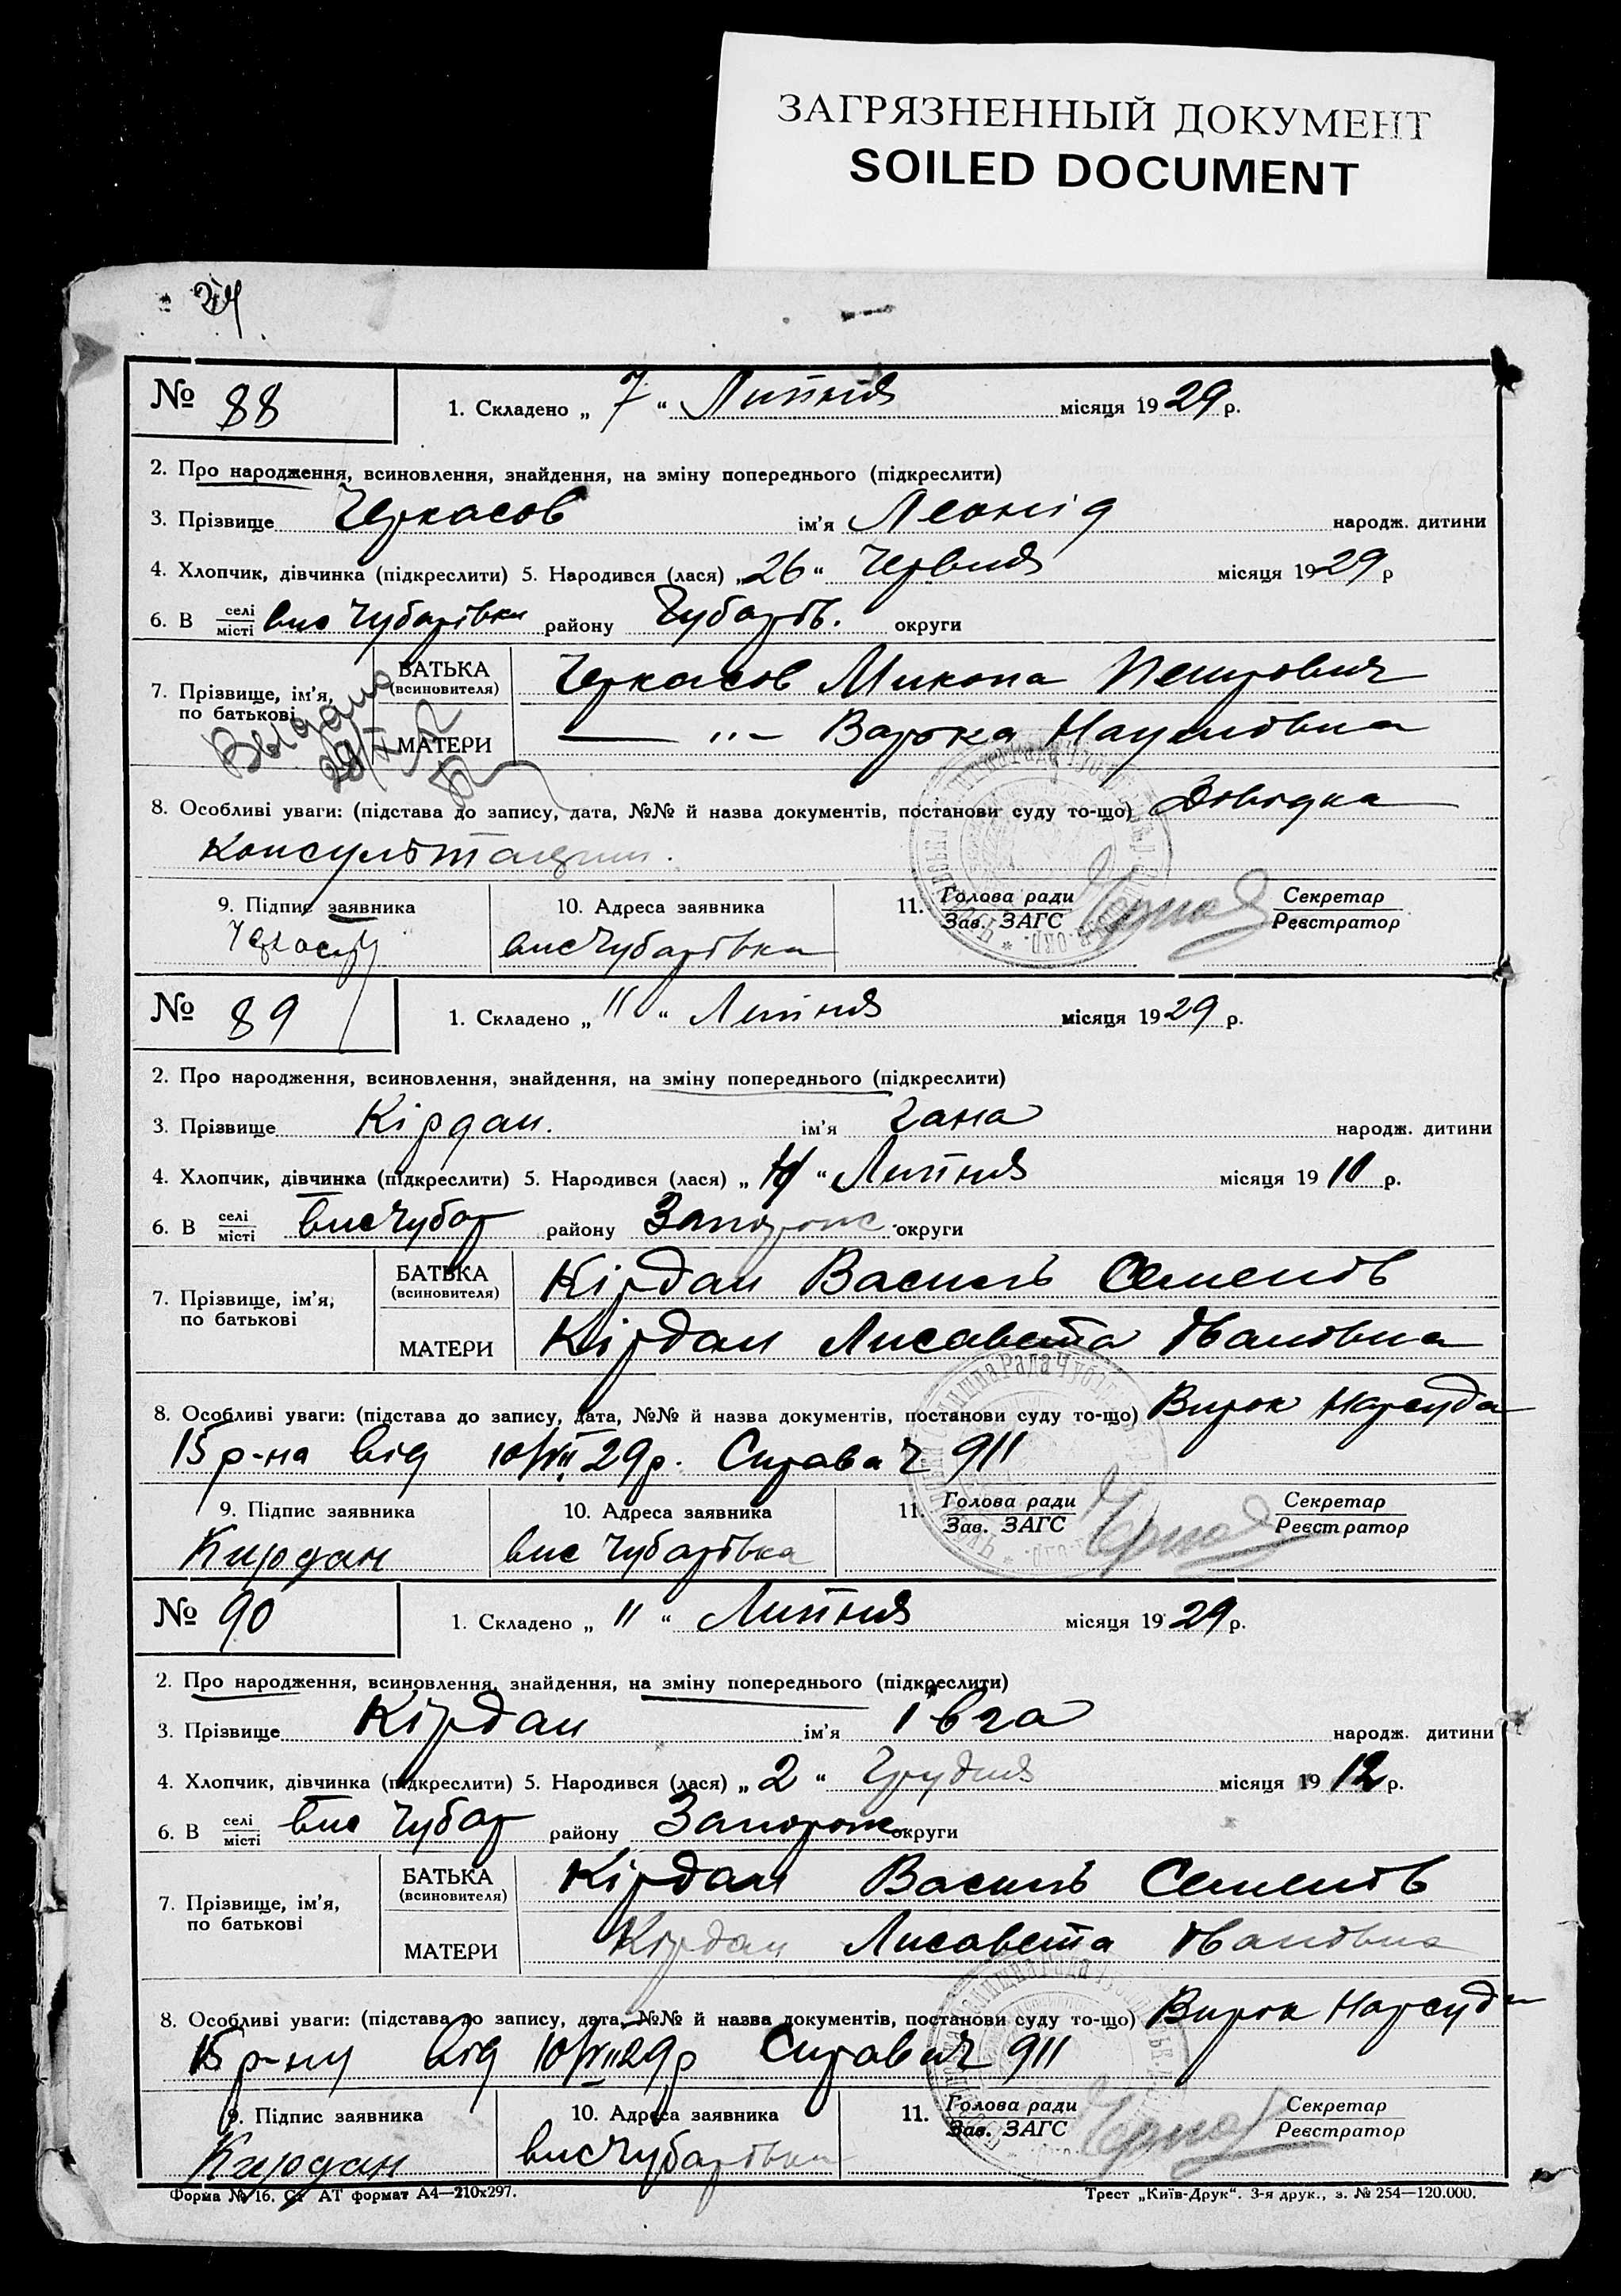 ЗАГРЯЗНЕННЫЙ ДОКУМЕНТ
SOILED DOCUMENT
№ 88
1. Складено „ 7 “ Липня місяця 1929 р.
2. Про народження, всиновлення, знайдення, на зміну попереднього (підкреслити)
3. Прізвище Черкасов ім'я Леонід народж. дитини
4. Хлопчик, дівчинка (підкреслити) 5. Народився (лася) „26“ Червня місяця 1929 р
6. В селі/місті вис Чубарівки району Чубарів. округи
7. Прізвище, ім'я, по батькові
БАТЬКА (всиновителя) Черкасов Микола Петрович
МАТЕРИ — " — Варька Наумовна
Выдано
8. Особливі уваги: (підстава до запису, дата, №№ й назва документів, постанови суду то-що) Довідка
консультации.
9. Підпис заявника
10. Адреса заявника
вис Чубарівка
11. Голова ради / Зав. ЗАГС
Секретар / Реєстратор
№ 89
1. Складено „ 11 “ Липня місяця 1929 р.
2. Про народження, всиновлення, знайдення, на зміну попереднього (підкреслити)
3. Прізвище Кірдан. ім'я Гана народж. дитини
4. Хлопчик, дівчинка (підкреслити) 5. Народився (лася) „ “ Липня місяця 1910 р.
6. В селі/місті вис Чубар району Запорож. округи
7. Прізвище, ім'я, по батькові
БАТЬКА (всиновителя) Кірдан Василь Семенів
МАТЕРИ Кірдан Лисавета Івановна
8. Особливі уваги: (підстава до запису, дата, №№ й назва документів, постанови суду то-що) Вирок Нарсуда
15 р-на від 10/VII 29р. Справа Ч 911
9. Підпис заявника
Кирдан
10. Адреса заявника
вис Чубарівка
11. Голова ради / Зав. ЗАГС
Секретар / Реєстратор
№ 90
1. Складено „ 11 “ Липня місяця 1929 р.
2. Про народження, всиновлення, знайдення, на зміну попереднього (підкреслити)
3. Прізвище Кірдан ім'я Івга народж. дитини
4. Хлопчик, дівчинка (підкреслити) 5. Народився (лася) „ 2 “ Грудня місяця 1912 р.
6. В селі/місті вис Чубар району Запорож. округи
7. Прізвище, ім'я, по батькові
БАТЬКА (всиновителя) Кірдан Василь Семенів
МАТЕРИ Кірдан Лисавета Івановна
8. Особливі уваги: (підстава до запису, дата, №№ й назва документів, постанови суду то-що) Вирок Нарсуда
15 р-ну від 10/VII 29р Справа Ч 911
9. Підпис заявника
Кирдан
10. Адреса заявника
вис Чубарівка
11. Голова ради / Зав. ЗАГС
Секретар / Реєстратор
Форма № 16. Ст АТ формат А4—210х297.
Трест „Київ-Друк“. 3-я друк., з. № 254—120.000.